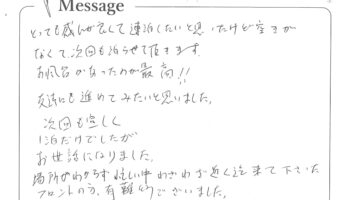 Message
とっても感じが良くて連泊したいと思いたけど空きが
なくて、次回も泊らせて頂きます。
お風呂がよかったのが最高!!
友達にも進めてみたいと思いました。
次回も宜しく
1泊だけでしたが
お世話になりました。
場所がわからず忙しい中わざわざ近く迄来て下さった
フロントの方、有難うございました。